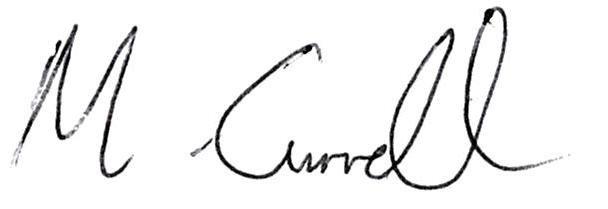 M Currell